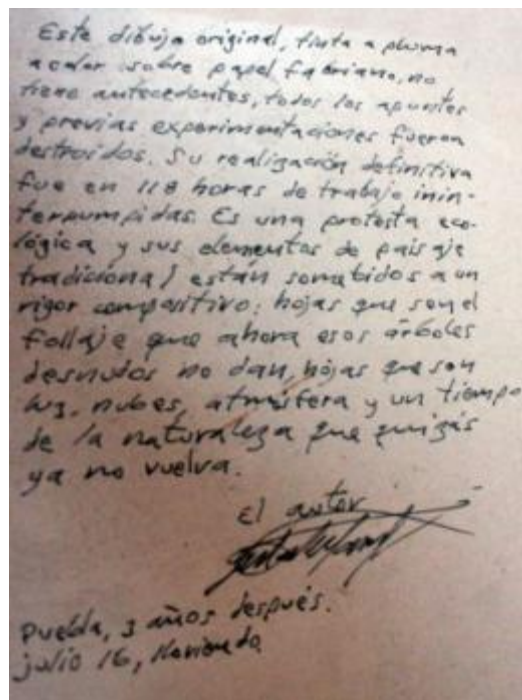 Este dibujo original, tinta a pluma
a color sobre papel fabriano, no
tiene antecedentes, todos los apuntes
y previas experimentaciones fueron
destroidos. Su realización definitiva
fue en 118 horas de trabajo inin-
terrumpidas. Es una protesta eco-
lógica y sus elementos de paisaje
tradicional están sometidos a un
rigor compositivo: hojas que son el
follaje que ahora esos árboles
desnudos no dan, hojas que son
luz, nubes, atmósfera y un tiempo
de la naturaleza que quizás
ya no vuelva.
El autor
Puebla, 3 años después.
julio 16, lloviendo